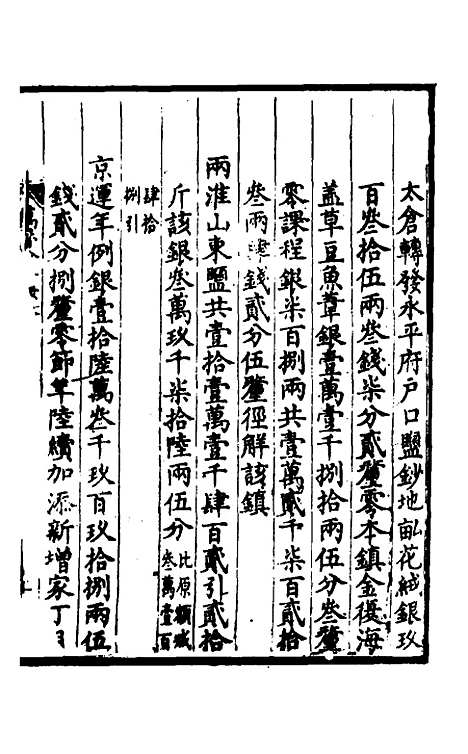 太倉轉發永平府戶口鹽鈔地畝花絨銀玖
百叄拾伍兩叄錢柒分貳釐零本鎮金復海
蓋草豆魚葦銀壹萬壹千捌拾兩伍分叄釐
零課程銀柒百捌兩共壹萬貳千柒百貳拾
叄兩肆錢貳分伍釐徑解該鎮
兩淮山東鹽共壹拾壹萬壹千肆百貳引貳拾
斤該銀叄萬玖千柒拾陸兩伍分比原額減叄萬壹百
肆拾捌引
京運年例銀壹拾陸萬叄千玖百玖拾捌兩伍
錢貳分捌釐零節年陸續加添新增家丁月